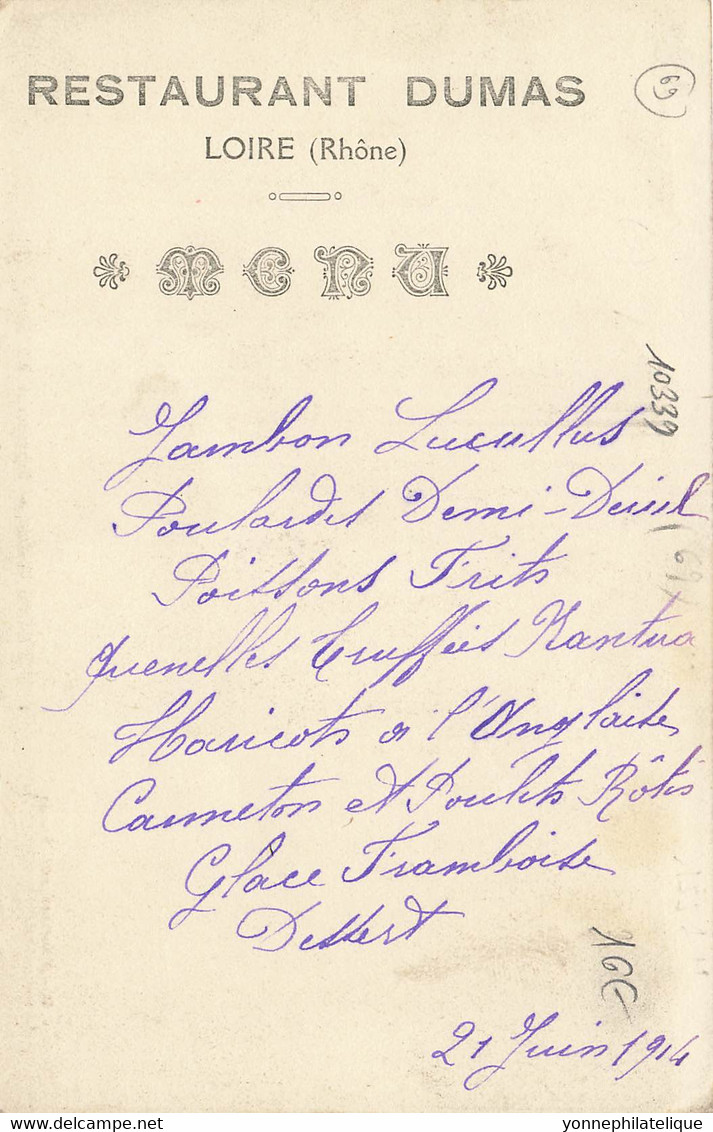 RESTAURANT DUMAS
LOIRE (Rhône)
MENU
Jambon Lucullus
Poulardes Demi-Deuil
Poissons Frits
Quenelles Truffées Nantua
Haricots à l'Anglaise
Canneton et Poulets Rôtis
Glace Framboise
Dessert
21 Juin 1914
10339
yonnephilatelique